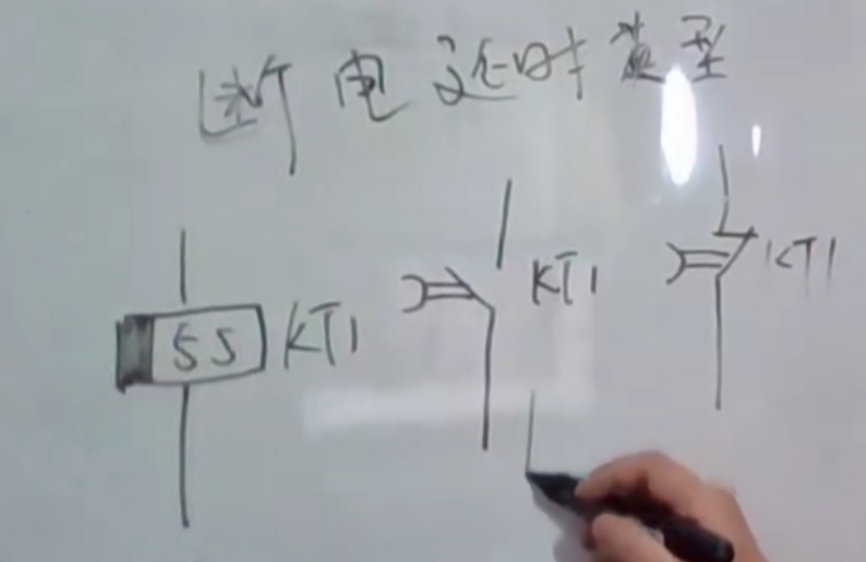 断电延时类型
5S KT1
KT1
KT1